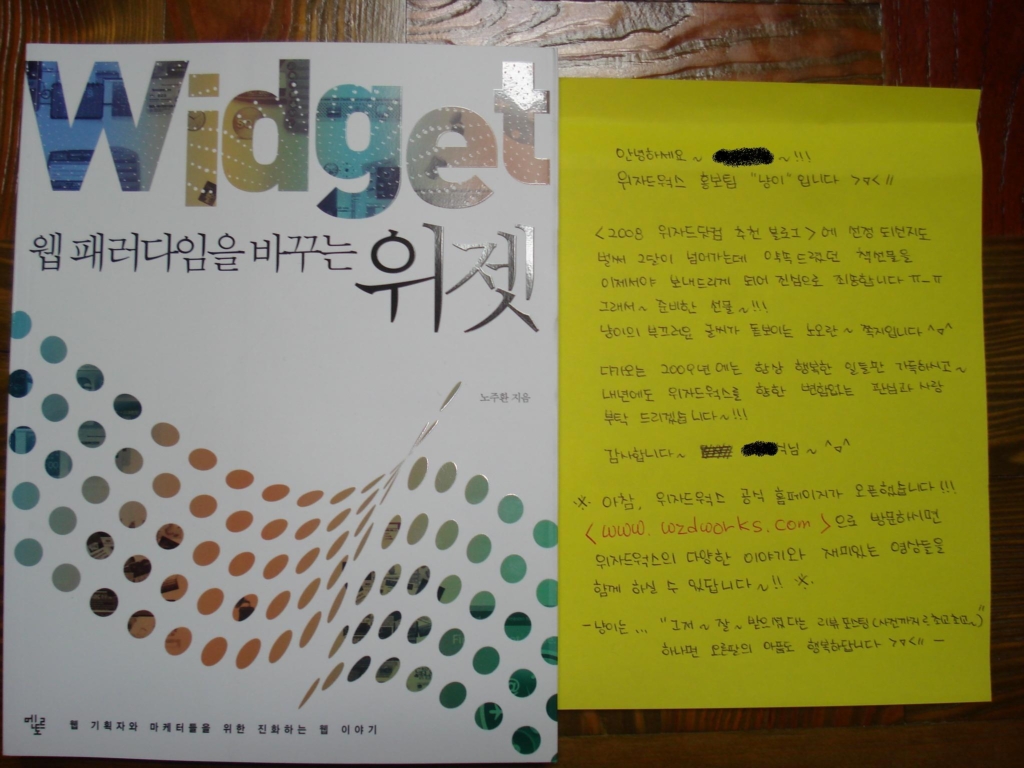 Widget
웹 패러다임을 바꾸는 위젯
노주환 지음
멘토르
웹 기획자와 마케터들을 위한 진화하는 웹 이야기
안녕하세요~ ~!!!
위자드웍스 홍보팀 "냥이"입니다 >▽<//
<2008 위자드닷컴 추천 블로그>에 선정 되신지도
벌써 2달이 넘어가는데 약속드렸던 책선물을
이제서야 보내드리게 되어 진심으로 죄송합니다 ㅠ_ㅠ
그래서~ 준비한 선물~!!!
냥이의 부끄러운 글씨가 돋보이는 노오란~ 쪽지입니다 ^o^
다가오는 2009년에는 항상 행복한 일들만 가득하시고~
내년에도 위자드웍스를 향한 변함없는 관심과 사랑
부탁 드리겠습니다~!!!
감사합니다~ 님~ ^o^
※ 아참, 위자드웍스 공식 홈페이지가 오픈했습니다!!!
<www.wzdworks.com>으로 방문하시면
위자드웍스의 다양한 이야기와 재미있는 영상들을
함께 하실 수 있답니다~!! ※.
-냥이는... "그저~ 잘~ 받으셨다는 리뷰 포스팅(사진까지르 좋고좋고~)"
하나면 오른팔의 아픔도 행복하답니다 >▽<// -